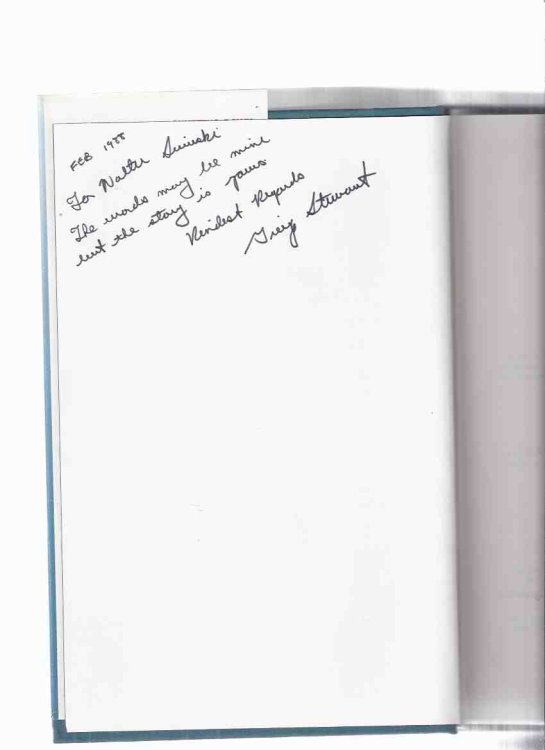 FEB 1988
For Walter
The words may be mine
but the story is yours
Kindest Regards
Greig Stewart